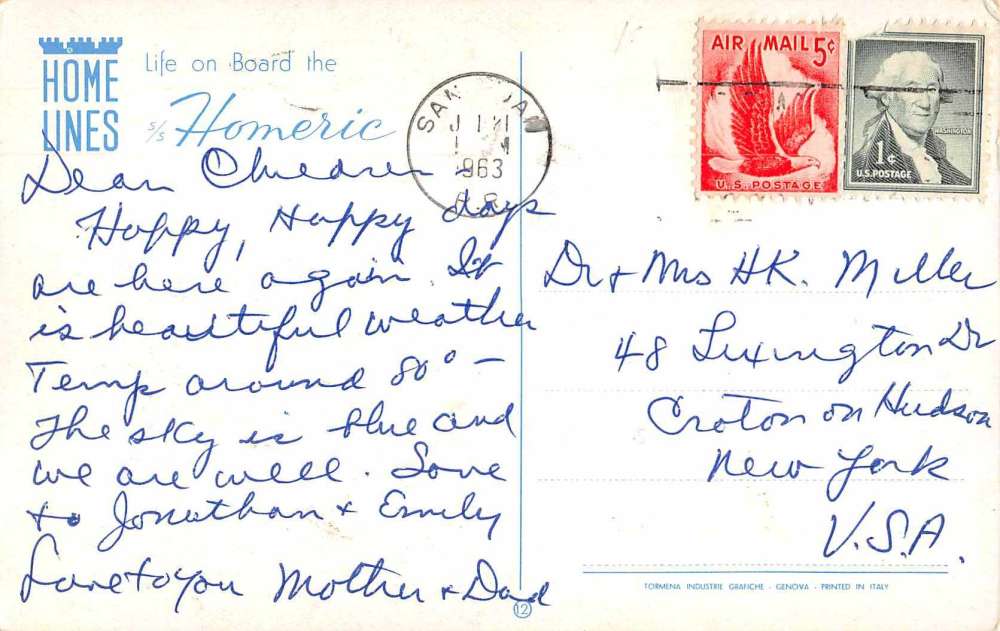 HOME LINES
Life on Board the
s/s Homeric
SAN JUAN
1963
P.R.
AIR MAIL 5¢
U.S. POSTAGE
WASHINGTON
1¢
U.S. POSTAGE
Dear Children –
Happy, Happy days
are here again. It
is beautiful weather
Temp around 80° –
The sky is blue and
we are well. Love
to Jonathan + Emily
Love to you Mother + Dad
Dr + Mrs HK. Miller
48 Lexington Dr
Croton on Hudson
New York
U.S.A.
TORMENA INDUSTRIE GRAFICHE - GENOVA - PRINTED IN ITALY
12